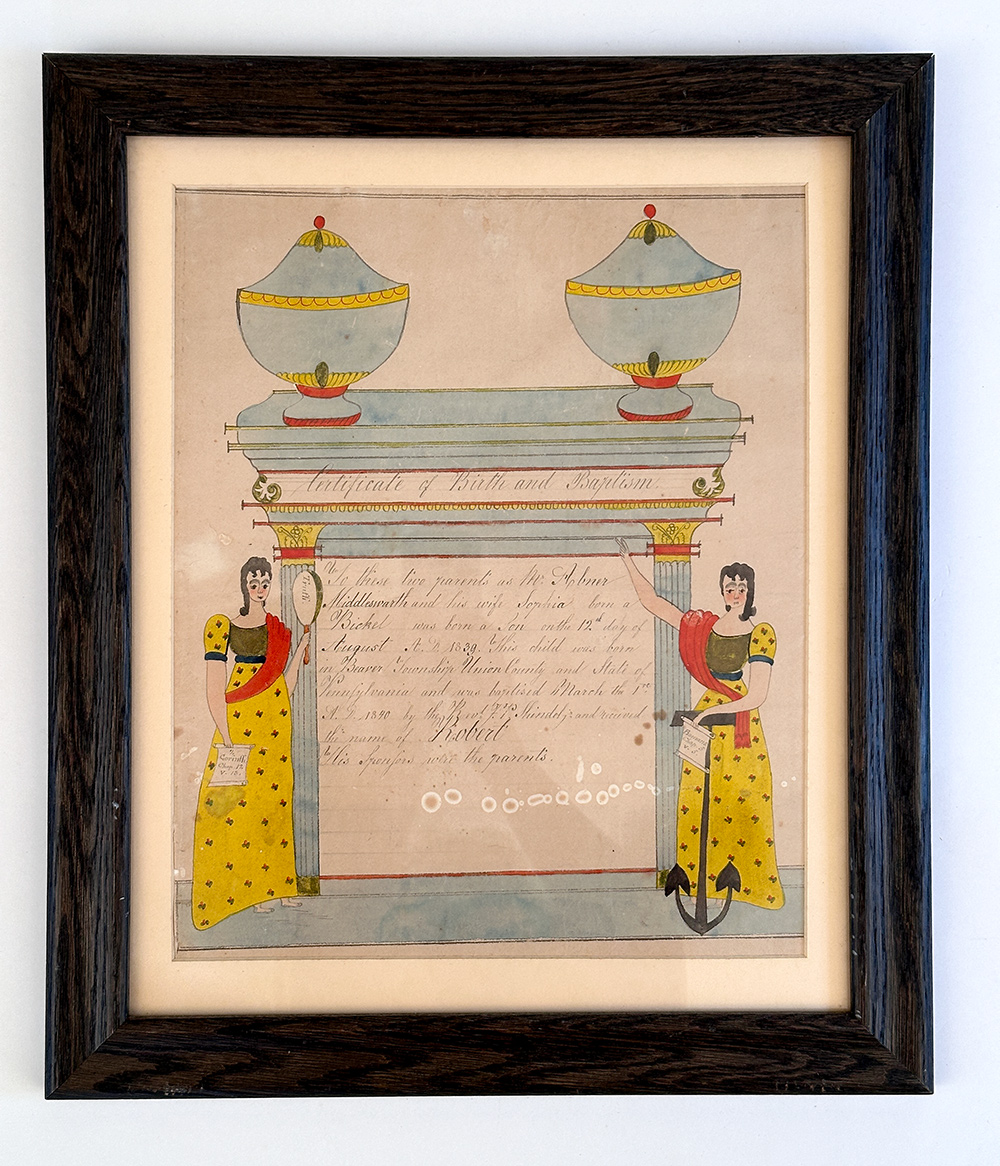 Certificate of Birth and Baptism.
To these two parents as Mr. Abner
Middleswarth and his wife Sophia born a
Bickel was born a Son on the 12th day of
August A. D. 1839. This child was born
in Beaver Township Union County and State of
Pennsylvania and was baptised March the 1st
A. D. 1840 by the Rev'd J. P. and received
the name of Robert
His Sponsors were the parents.
Truth
Corinth
Chap. 12
V.
Chap.
V.